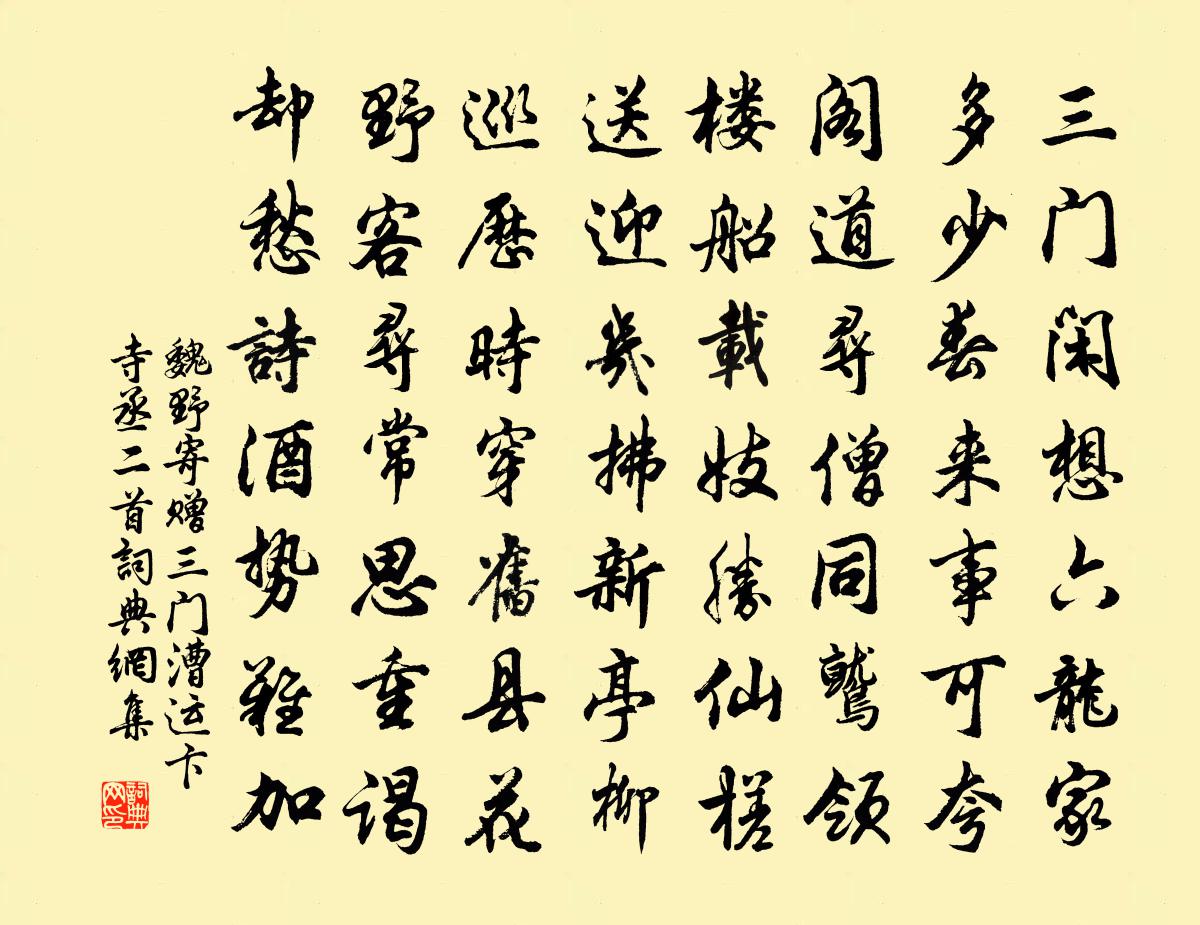 三门闲想六龍家
多少春来事可夸
阁道尋僧同鹫领
楼船載妓勝仙槎
送迎幾拂新亭柳
巡歷時穿舊县花
野客尋常思重谒
却愁詩酒势難加
魏野寄赠三门漕运卞
寺丞二首詞典網集
詞典网印